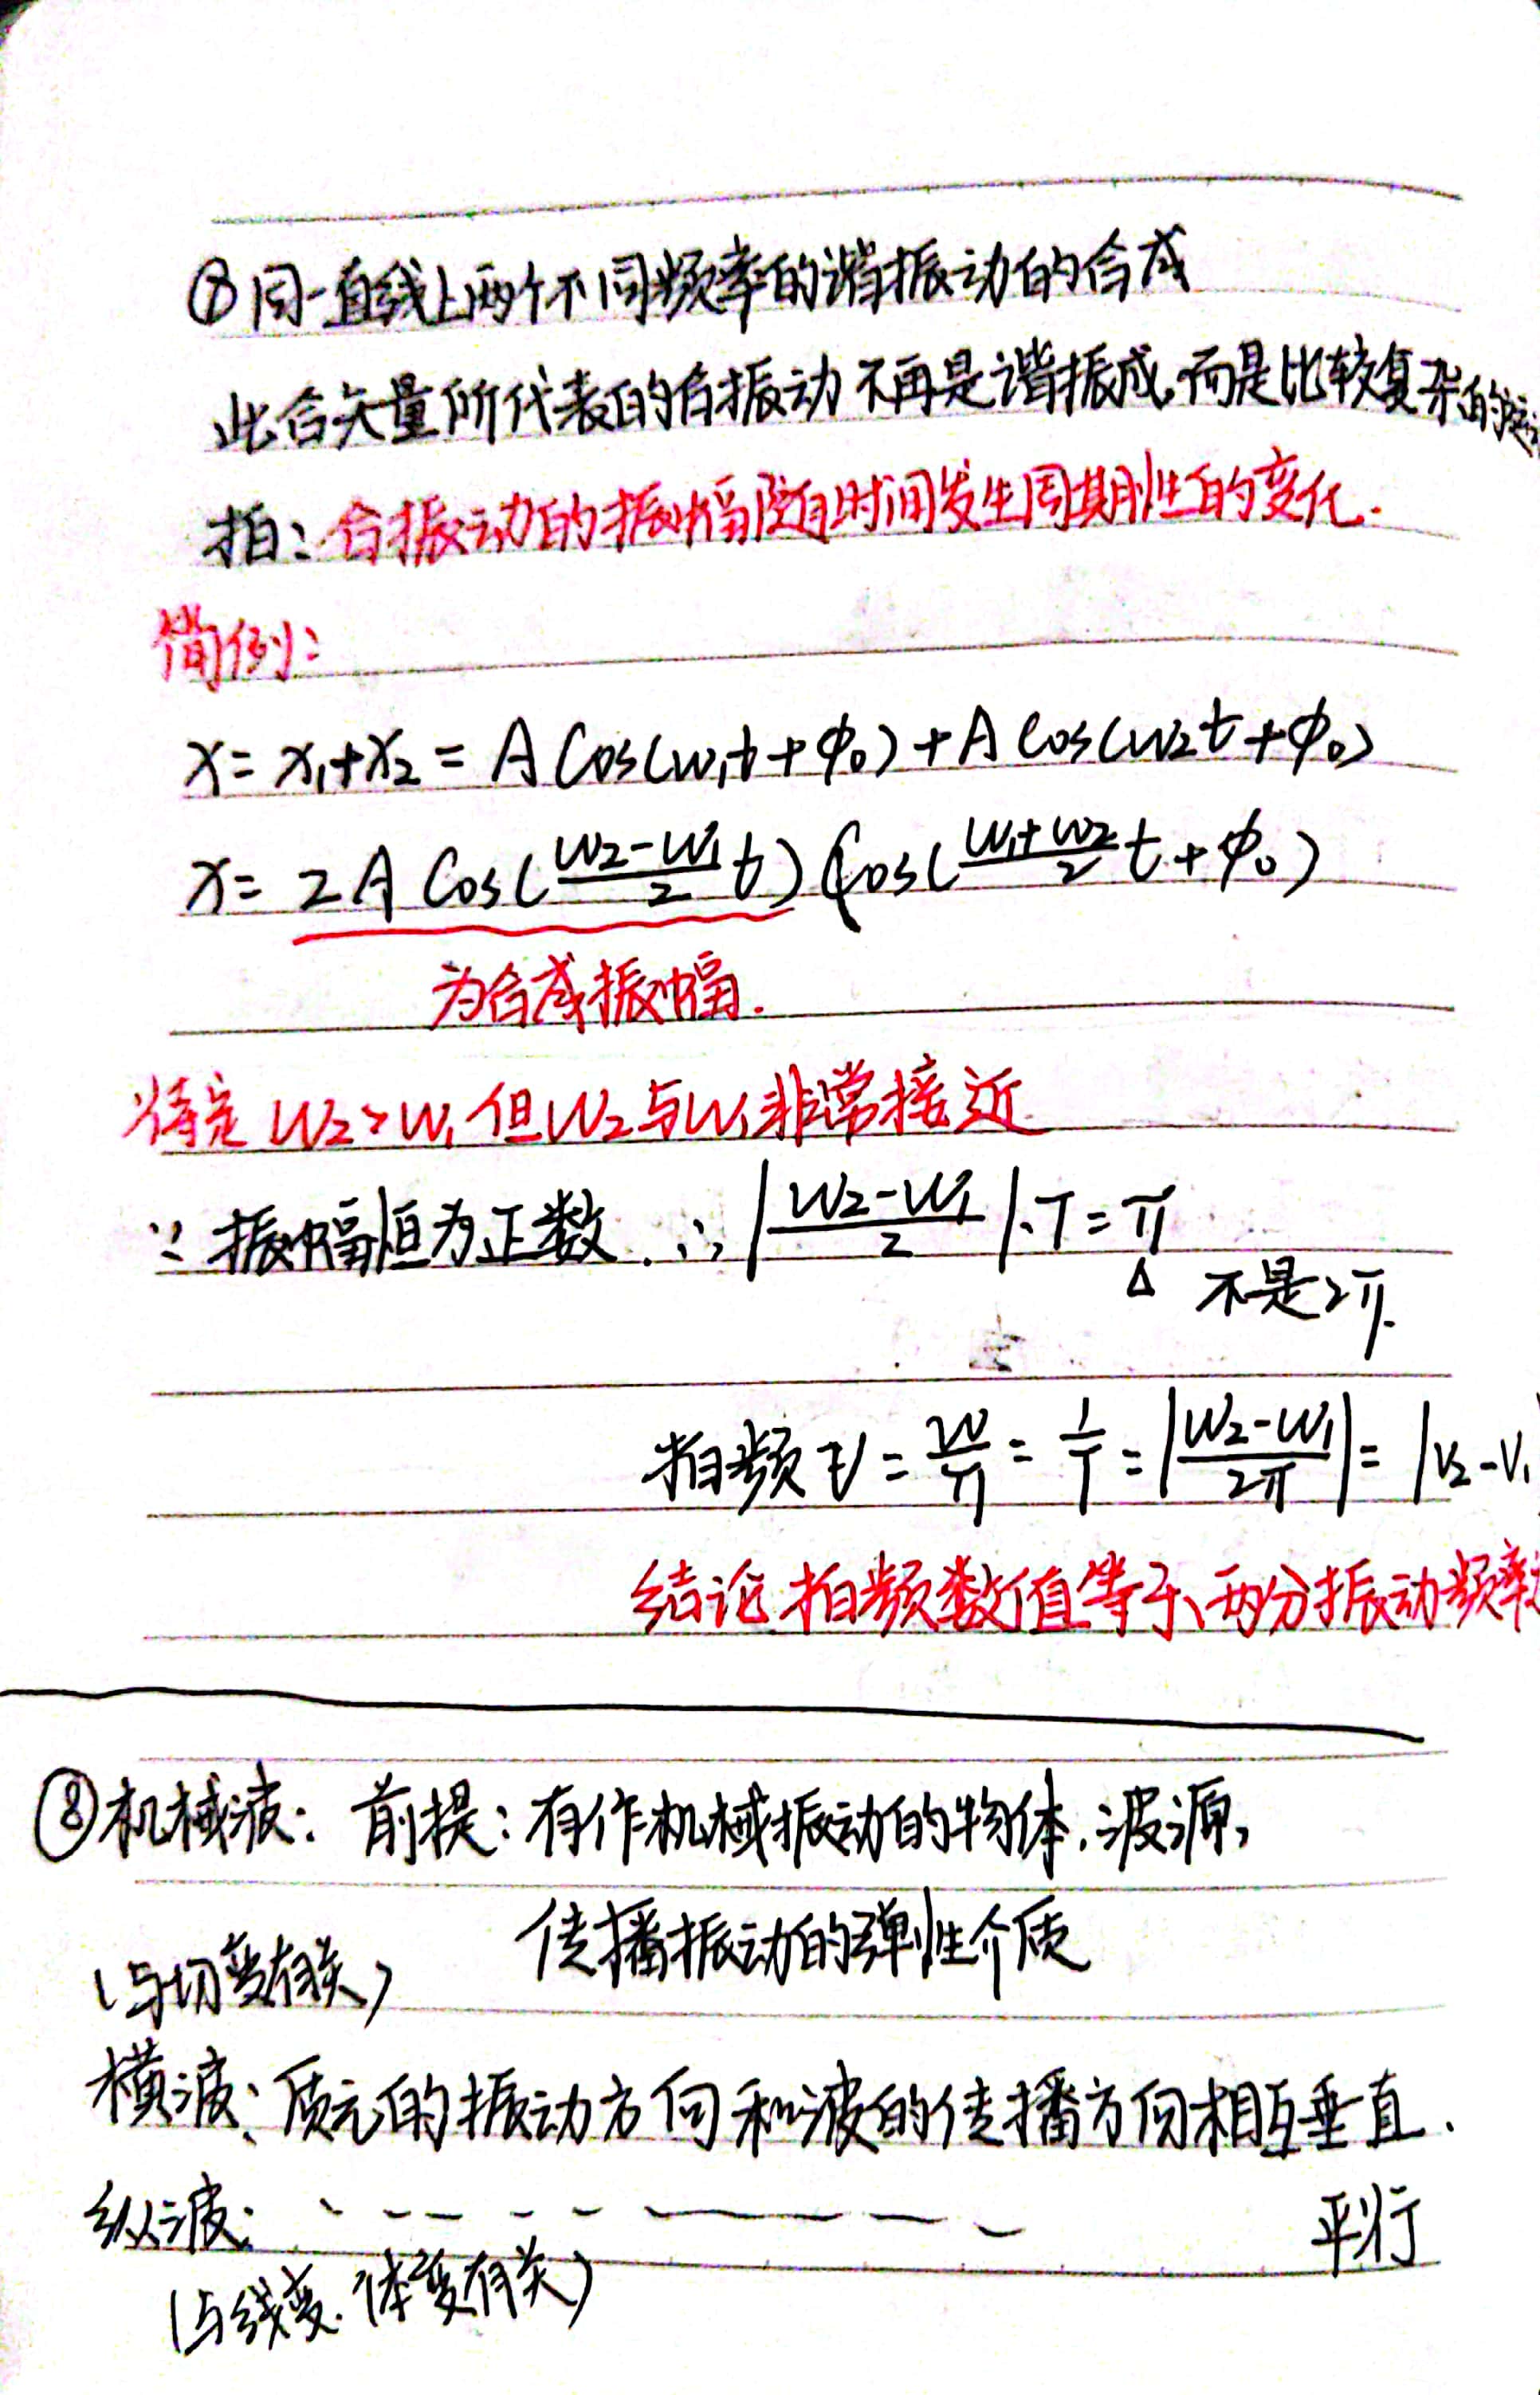 ⑦同一直线上两个不同频率的谐振动的合成
此合矢量所代表的合振动不再是谐振成,而是比较复杂的
拍:合振动的振幅随时间发生周期性的变化.
简例:
x=x₁+x₂=A Cos(w₁t+φ₀)+A Cos(w₂t+φ₀)
x= 2A Cos((w₂-w₁)/2 t) Cos((w₁+w₂)/2 t+φ₀)
为合成振幅.
w₂>w₁ 但w₂与w₁非常接近
∵振幅恒为正数.∴|(w₂-w₁)/2|·T=π
Δ 不是2π.
拍频ν=w/π=1/T=|(w₂-w₁)/2π|=|ν₂-ν₁
结论 拍频数值等于两分振动频率
⑧机械波: 前提:有作机械振动的物体,波源,
传播振动的弹性介质
(与切变有关)
横波:质元的振动方向和波的传播方向相互垂直.
纵波: 平行
(与线变.体变有关)